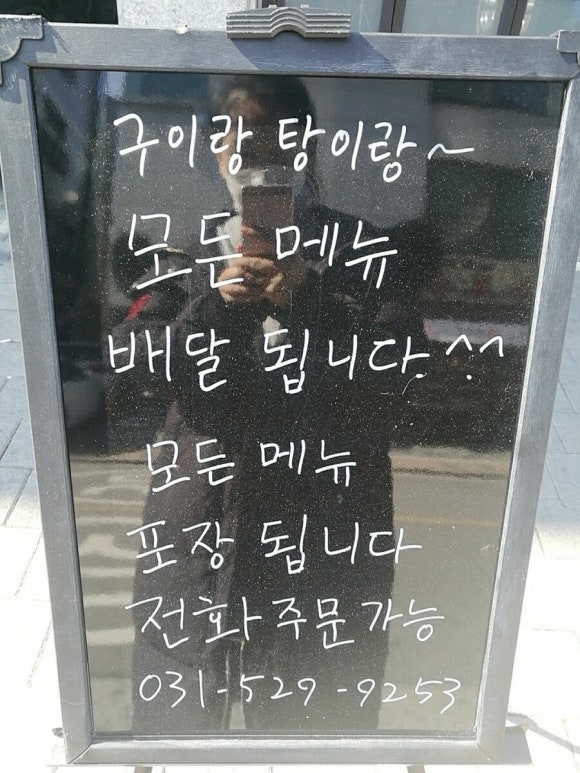 구이랑 탕이랑~
모든 메뉴
배달 됩니다.^^
모든 메뉴
포장 됩니다
전화주문가능
031-529-9253